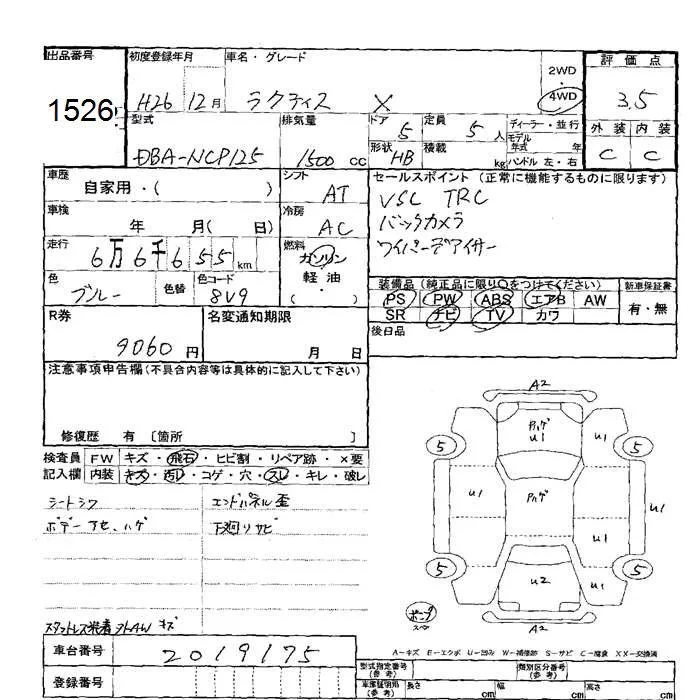 出品番号 初度登録年月 車名・グレード 2WD・4WD 評価点
1526 H26 12月 ラクティス X 3.5
型式 排気量 ドア 5 定員 5人 ディーラー・並行 外装 内装
モデル年式 年
DBA-NCP125 1500cc 形状 HB 積載 kg ハンドル 左・右 C C
車歴 シフト セールスポイント(正常に機能するものに限ります)
自家用・( ) AT VSC TRC
車検 冷房 バックカメラ
年 月( 日) AC ワイパーデアイサー
走行 燃料
6万6千655km ガソリン・軽油
色 色替 色コード ( ・ )
ブルー 8V9
装備品(純正品に限り○をつけてください) 新車保証書
PS PW ABS エアB AW 有・無
SR ナビ TV カワ
R券 名変通知期限 後日品
9060円 月 日
注意事項申告欄(不具合内容等は具体的に記入して下さい)
修復歴 有 〔箇所 〕
検査員 FW キズ・飛石・ヒビ割・リペア跡・×要
記入欄 内装 キズ・汚レ・コゲ・穴・スレ・キレ・破レ
シートシワ エンドパネル歪
ボデーアセ、ハゲ 下廻りサビ
スタットレス装着 AW キズ
車台番号 2019175
登録番号
A2
ハゲ
U1
U1
5 5
U1 ハゲ U1
U1
5 U2 U1 5
A2
A-キズ E-エクボ U-凹み W-補修跡 S-サビ C-腐食 XX-交換済
型式指定番号(参考) 類別区分番号(参考)
車庫証明用(参考) 長さ cm 幅 cm 高さ cm